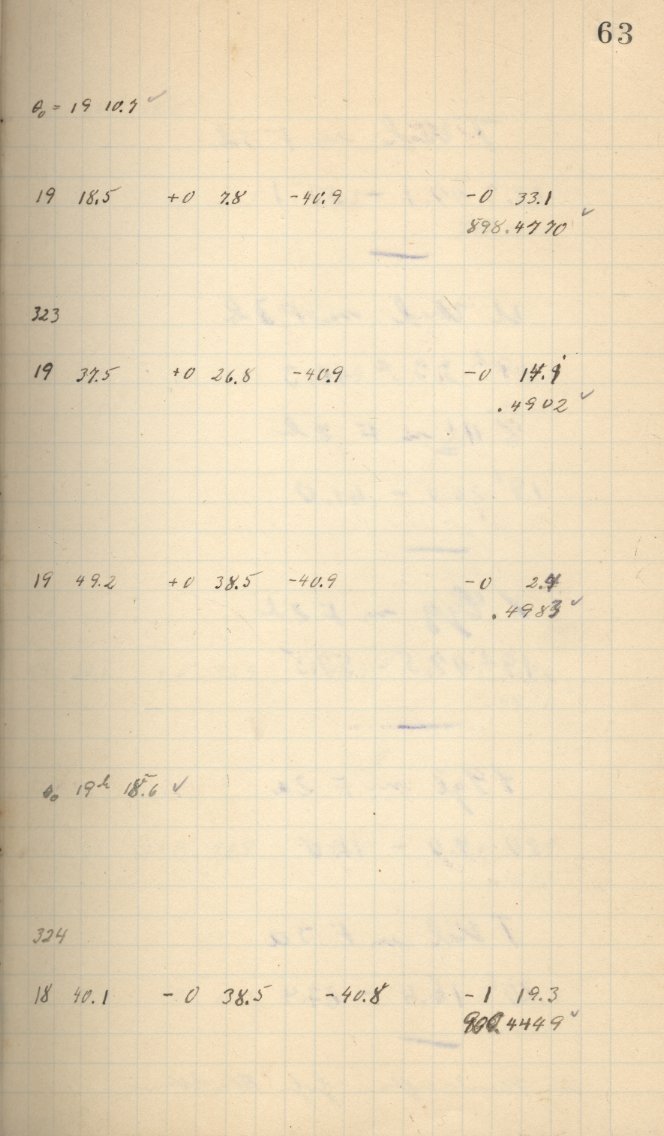 63
θ₀ = 19 10.7 ✓
19 18.5 +0 7.8 -40.9 -0 33.1
898.4770 ✓
323
19 37.5 +0 26.8 -40.9 -0 14.1
.4902 ✓
19 49.2 +0 38.5 -40.9 -0 2.4
.4983 ✓
θ₀ 19ʰ 18.6 ✓
324
18 40.1 -0 38.5 -40.8 -1 19.3
900.4449 ✓